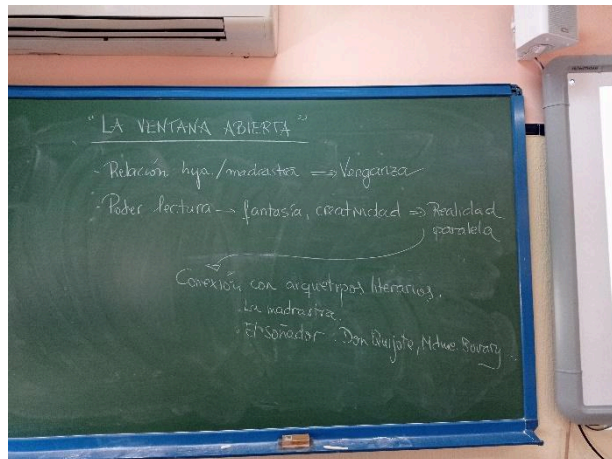 "LA VENTANA ABIERTA"
· Relación hija/madrastra ⇒ Venganza
· Poder lectura → fantasía, creatividad ⇒ Realidad
paralela
Conexión con arquetipos literarios.
· La madrastra.
· El soñador: Don Quijote, Mdme. Bovary